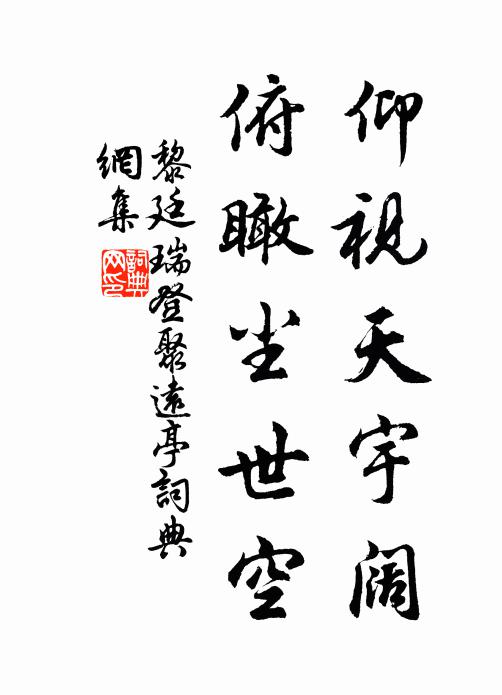 仰视天宇阔
俯瞰尘世空
黎廷瑞登聚遠亭詞典
網集
詞典
网印